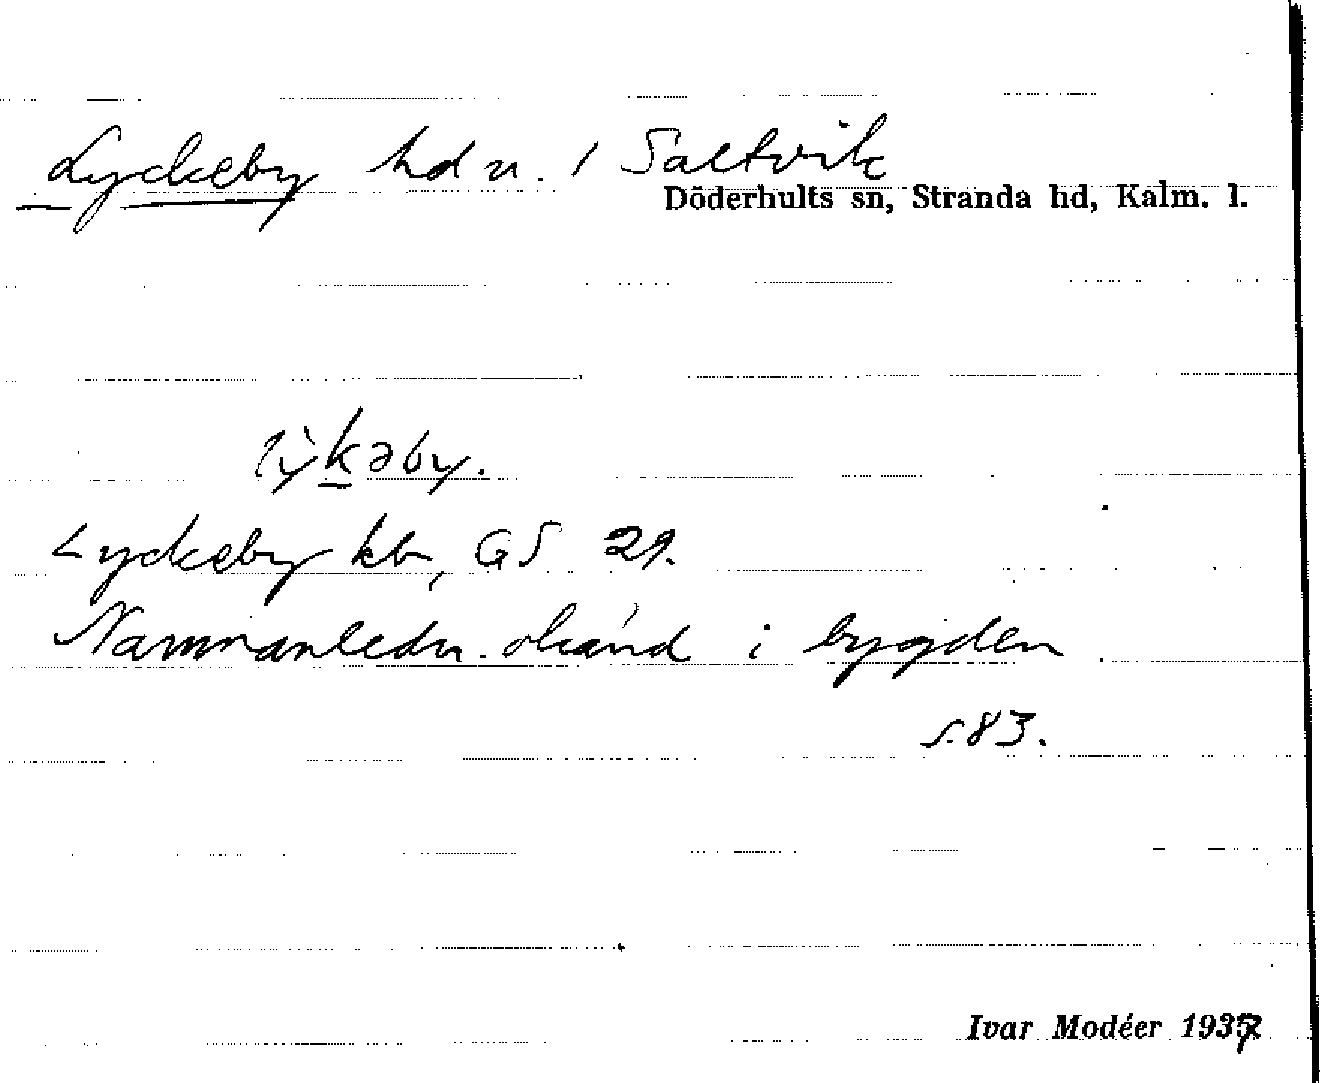 Lyckeby hdn. / Saltvik
Döderhults sn, Stranda hd, Kalm. l.
lỳkəby.
Lyckeby kb, GS 29.
Namnanledn. okänd i bygden
s. 83.
Ivar Modéer 1937